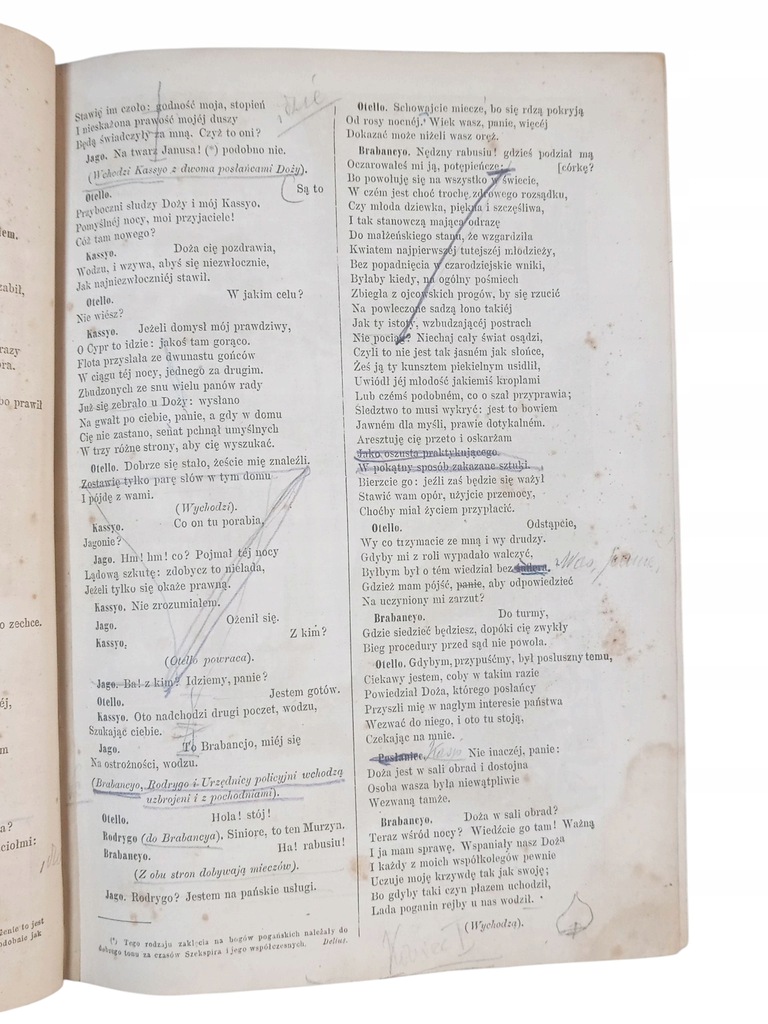 Stawię im czoło: godność moja, stopień
I nieskażona prawość mojéj duszy
Będą świadczyły za mną. Czyż to oni?
Jago. Na twarz Janusa! (*) podobno nie.
(Wchodzi Kassyo z dwoma posłańcami Doży).
Otello. Są to
Przyboczni słudzy Doży i mój Kassyo.
Pomyślnéj nocy, moi przyjaciele!
Cóż tam nowego?
Kassyo. Doża cię pozdrawia,
Wodzu, i wzywa, abyś się niezwłocznie,
Jak najniezwłoczniéj stawił.
Otello. W jakim celu?
Nie wiész?
Kassyo. Jeżeli domysł mój prawdziwy,
O Cypr to idzie: jakoś tam gorąco.
Flota przysłała ze dwunastu gońców
W ciągu téj nocy, jednego za drugim.
Zbudzonych ze snu wielu panów rady
Już się zebrało u Doży: wysłano
Na gwałt po ciebie, panie, a gdy w domu
Cię nie zastano, senat pchnął umyślnych
W trzy różne strony, aby cię wyszukać.
Otello. Dobrze się stało, żeście mię znaleźli.
Zostawię tylko parę słów w tym domu
I pójdę z wami.
(Wychodzi).
Kassyo. Co on tu porabia,
Jagonie?
Jago. Hm! hm! co? Pojmał téj nocy
Lądową szkutę: zdobycz to nielada,
Jeżeli tylko się okaże prawną.
Kassyo. Nie zrozumiałem.
Jago. Ożenił się.
Kassyo, Z kim?
(Otello powraca).
Jago. Ba! z kim? Idziemy, panie?
Otello. Jestem gotów.
Kassyo. Oto nadchodzi drugi poczet, wodzu,
Szukając ciebie.
Jago. To Brabancjo, miéj się
Na ostrożności, wodzu.
(Brabancyo, Rodrygo i Urzędnicy policyjni wchodzą
uzbrojeni i z pochodniami).
Otello. Hola! stój!
Rodrygo (do Brabancya). Siniore, to ten Murzyn.
Brabancyo. Ha! rabusiu!
(Z obu stron dobywają mieczów).
Jago. Rodrygo? Jestem na pańskie usługi.
(*) Tego rodzaju zaklęcia na bogów pogańskich należały do
dobrego tonu za czasów Szekspira i jego współczesnych. Delius.
Otello. Schowajcie miecze, bo się rdzą pokryją
Od rosy nocnéj. Wiek wasz, panie, więcéj
Dokazać może niżeli wasz oręż.
Brabancyo. Nędzny rabusiu! gdzieś podział mą
Oczarowałeś mi ją, potępieńcze: [córkę?
Bo powołuję się na wszystko w świecie,
W czém jest choć trochę zdrowego rozsądku,
Czy młoda dziewka, piękna i szczęśliwa,
I tak stanowczą mająca odrazę
Do małżeńskiego stanu, że wzgardziła
Kwiatem najpierwszéj tutejszéj młodzieży,
Bez popadnięcia w czarodziejskie wniki,
Byłaby kiedy, na ogólny pośmiech
Zbiegła z ojcowskich progów, by się rzucić
Na powleczone sadzą łono takiéj
Jak ty istoty, wzbudzającéj postrach
Nie pociąg? Niechaj cały świat osądzi,
Czyli to nie jest tak jasném jak słońce,
Żeś ją ty kunsztem piekielnym usidlił,
Uwiódł jéj młodość jakiemiś kroplami
Lub czémś podobném, co o szał przyprawia;
Śledztwo to musi wykryć: jest to bowiem
Jawném dla myśli, prawie dotykalném.
Aresztuję cię przeto i oskarżam
Jako oszusta praktykującego
W pokątny sposób zakazane sztuki.
Bierzcie go: jeźli zaś będzie się ważył
Stawić wam opór, użyjcie przemocy,
Choćby miał życiem przypłacić.
Otello. Odstąpcie,
Wy co trzymacie ze mną i wy drudzy.
Gdyby mi z roli wypadało walczyć,
Byłbym był o tém wiedział bez suflera.
Gdzież mam pójść, panie, aby odpowiedzieć
Na uczyniony mi zarzut?
Brabancyo. Do turmy,
Gdzie siedzieć będziesz, dopóki cię zwykły
Bieg procedury przed sąd nie powoła.
Otello. Gdybym, przypuśćmy, był posłuszny temu,
Ciekawy jestem, coby w takim razie
Powiedział Doża, którego posłańcy
Przyszli mię w nagłym interesie państwa
Wezwać do niego, i oto tu stoją,
Czekając na mnie.
Posłaniec. Kassyo Nie inaczéj, panie:
Doża jest w sali obrad i dostojna
Osoba wasza była niewątpliwie
Wezwaną tamże.
Brabancyo. Doża w sali obrad?
Teraz wśród nocy? Wiedźcie go tam! Ważną
I ja mam sprawę. Wspaniały nasz Doża
I każdy z moich współkolegów pewnie
Uczuje moję krzywdę tak jak swoję;
Bo gdyby taki czyn płazem uchodził,
Lada poganin rejby u nas wodził.
(Wychodzą).
Koniec I